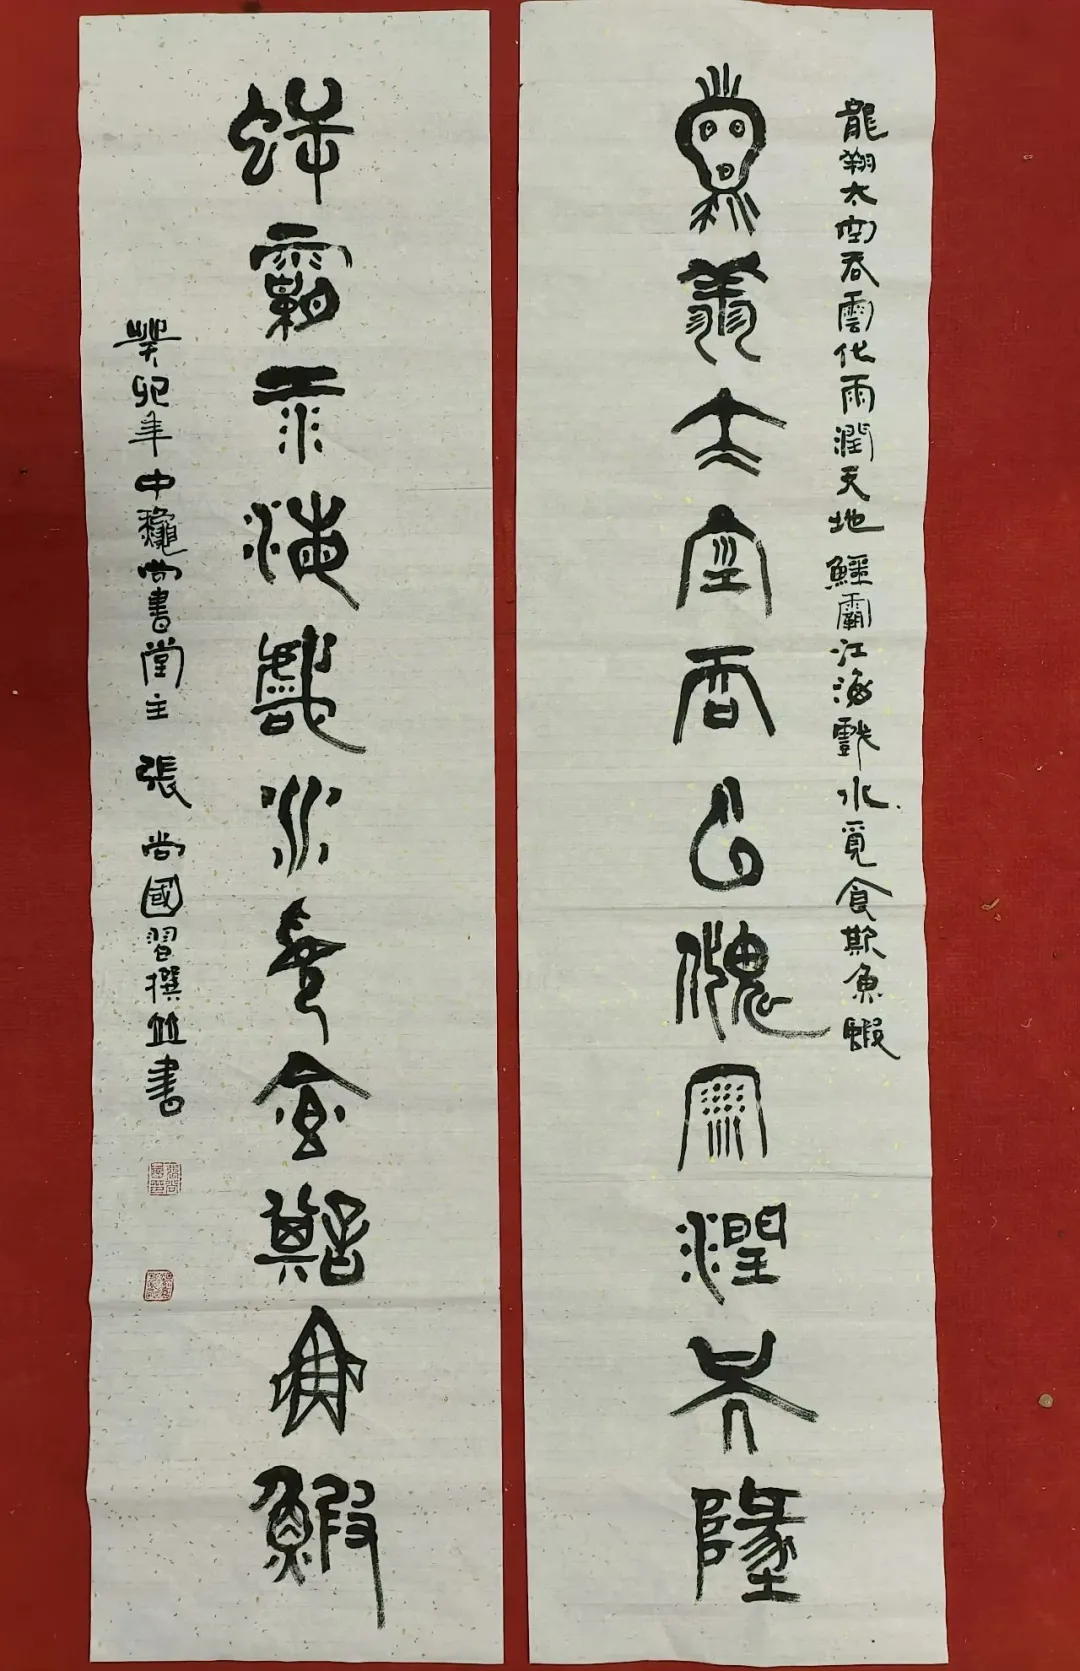 龍翔太空吞雲化雨潤天地 鱷霸江海戲水覓食欺魚蝦
龍翔太空吞雲化雨潤天地
鱷霸江海戲水覓食欺魚蝦
癸卯年中龝尚書堂主 張尚國習撰並書